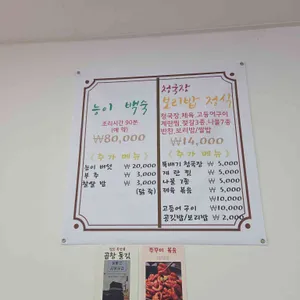 능이 백숙
조리시간 90분
(예 약)
₩80,000
〈추가 메뉴〉
능이버섯 ₩20,000
부 추 ₩ 3,000
찰밥 ₩ 3,000
(닭 죽)
청국장
보리밥 정식
청국장,제육,고등어구이
계란찜, 젓갈3종,나물7종
반찬,보리밥/쌀밥
₩14,000
〈추가 메뉴〉
뚝배기 청국장 ₩ 5,000
계 란 찜 ₩ 5,000
나물 7종 ₩ 5,000
제육 볶음 ₩ 5,000
₩10,000
고등어 구이 ₩10,000
공깃밥/보리밥 ₩ 2,000
곱창 돌김
쭈꾸미 볶음